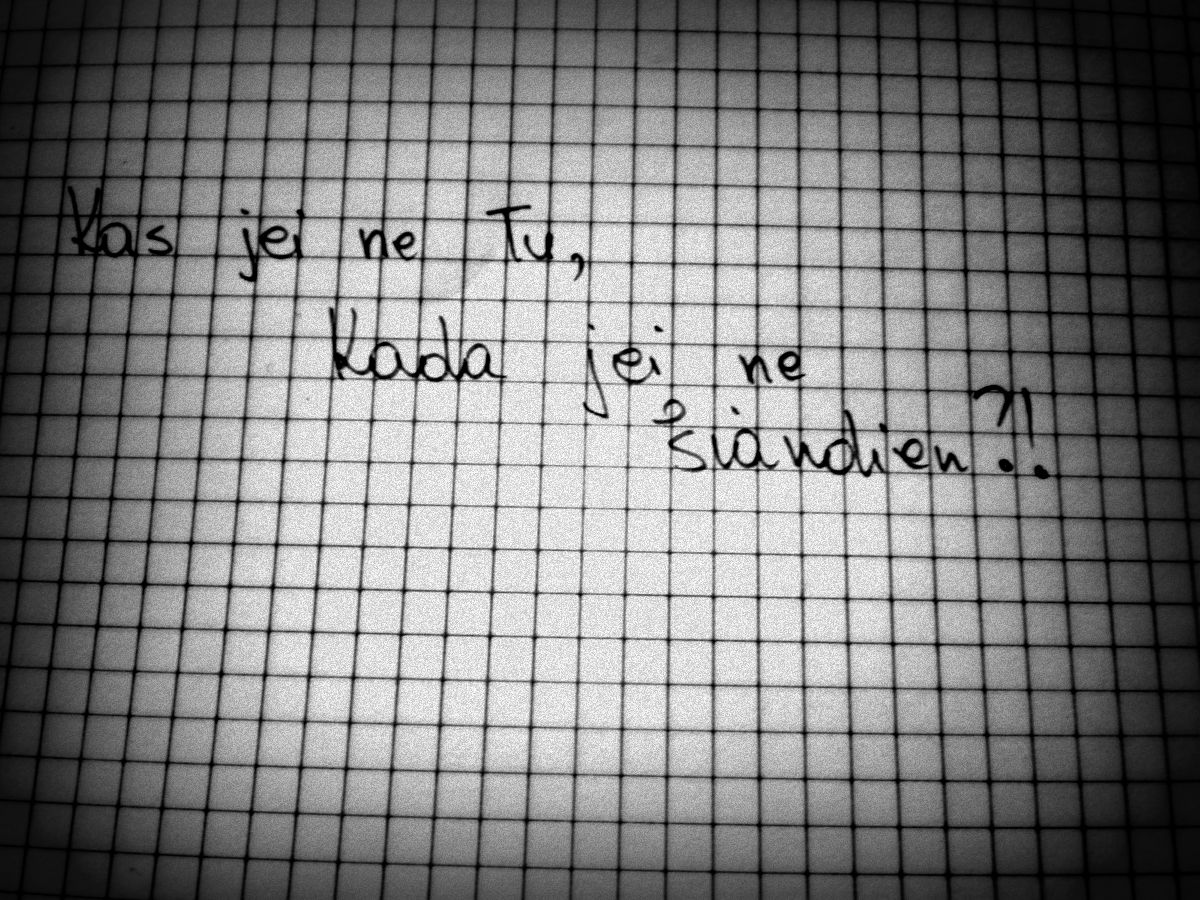 Kas jei ne Tu,
Kada jei ne
šiandien?!